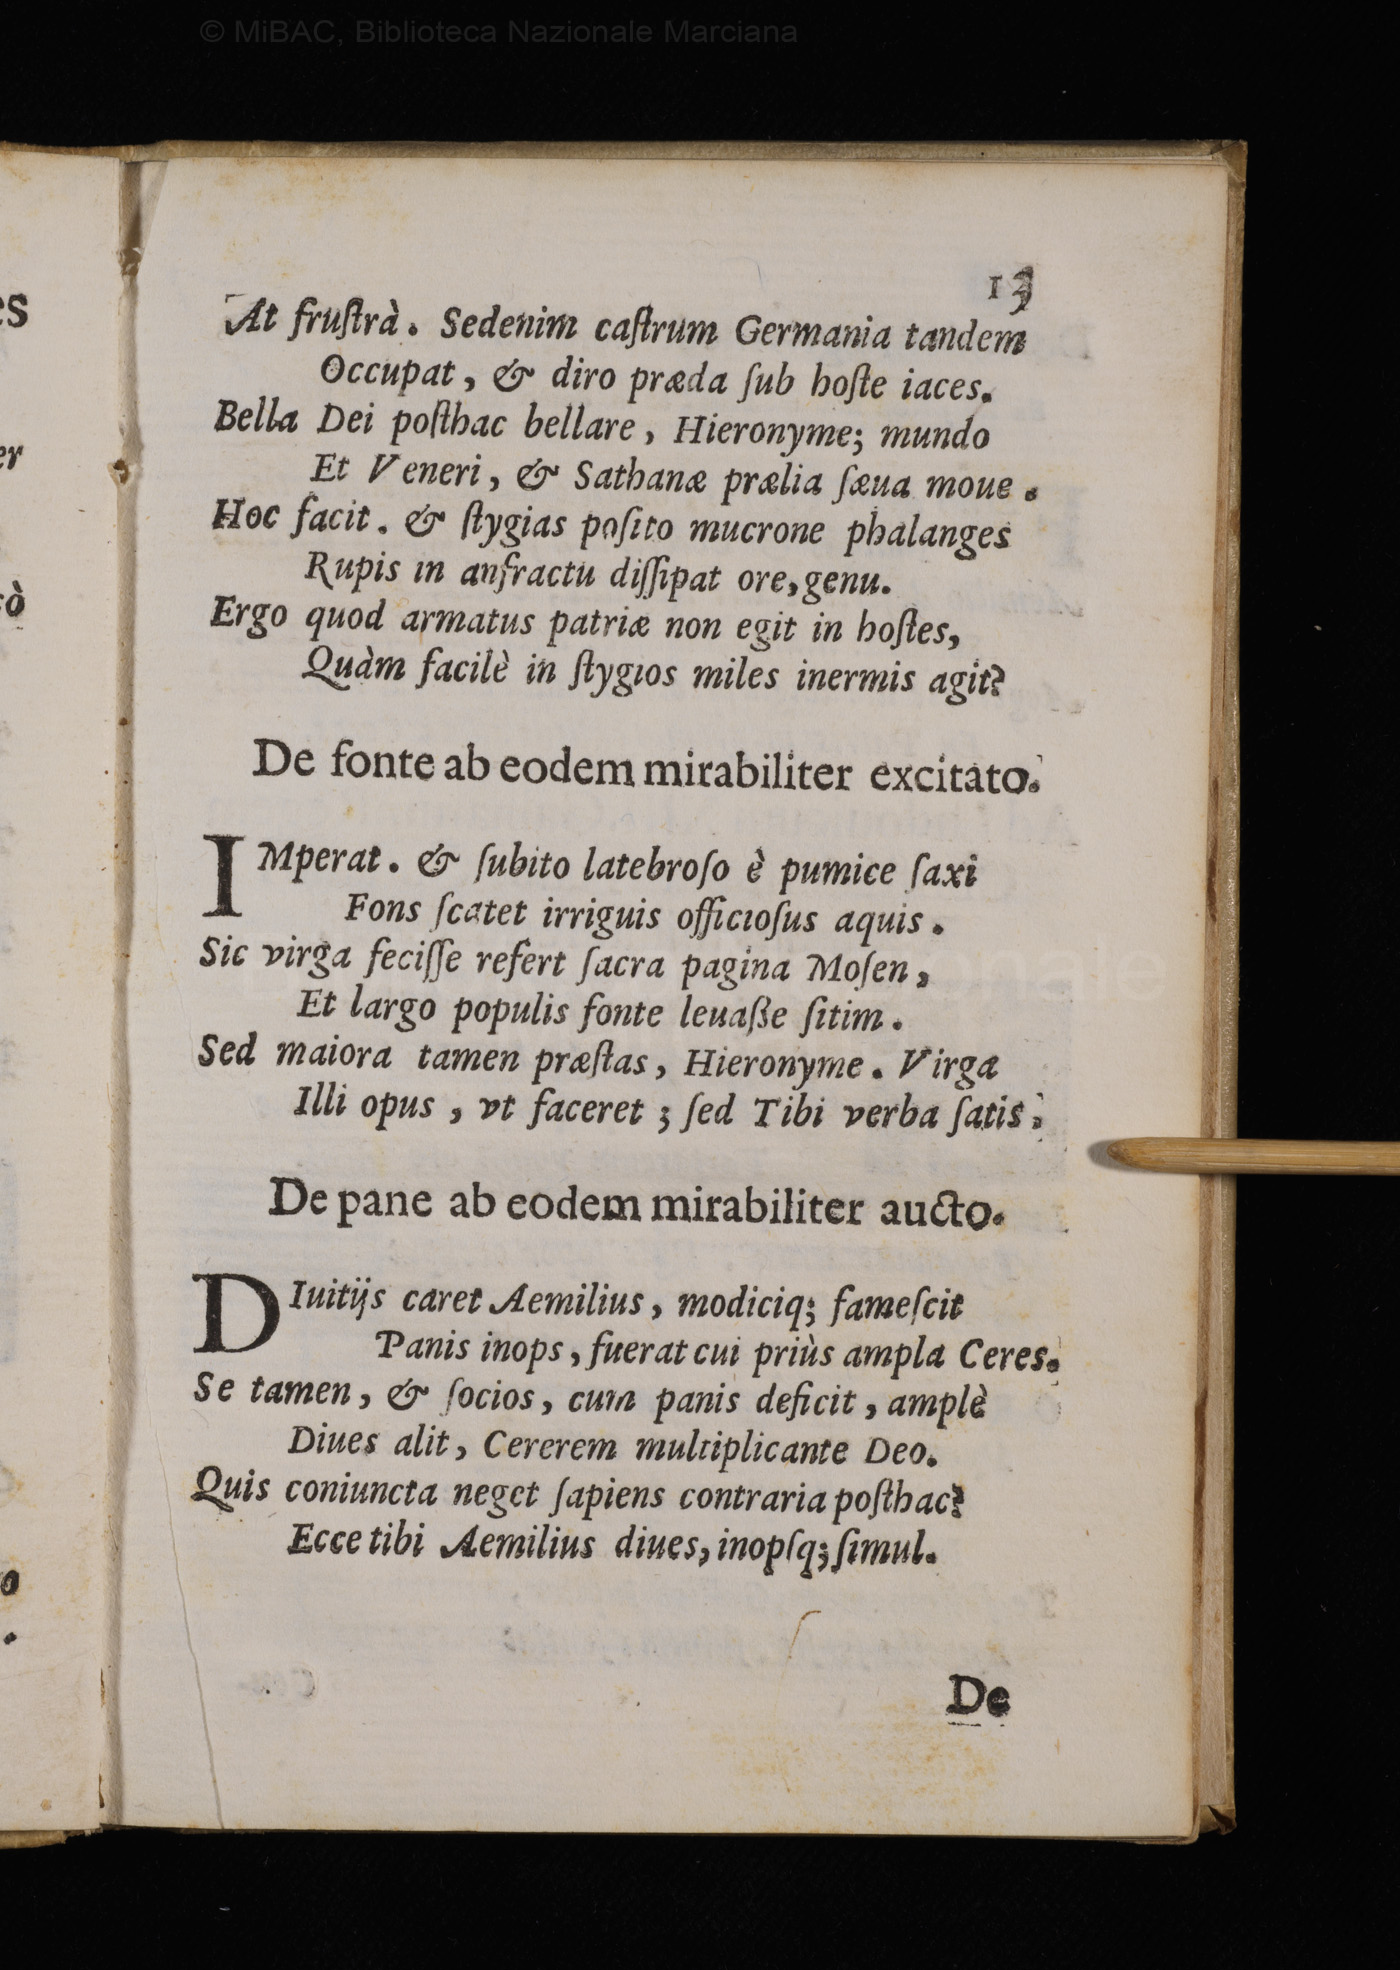 © MiBAC, Biblioteca Nazionale Marciana
13
At fruſtrà. Sedenim caſtrum Germania tandem
Occupat, & diro præda ſub hoſte iaces.
Bella Dei poſthac bellare, Hieronyme; mundo
Et Veneri, & Sathanæ prælia ſæua moue.
Hoc facit. & ſtygias poſito mucrone phalanges
Rupis in anfractu diſſipat ore, genu.
Ergo quod armatus patriæ non egit in hoſtes,
Quàm facilè in ſtygios miles inermis agit?
De fonte ab eodem mirabiliter excitato.
IMperat. & ſubito latebroſo è pumice ſaxi
Fons ſcatet irriguis officioſus aquis.
Sic virga feciſſe refert ſacra pagina Moſen,
Et largo populis fonte leuaße ſitim.
Sed maiora tamen præſtas, Hieronyme. Virga
Illi opus, vt faceret; ſed Tibi verba ſatis.
De pane ab eodem mirabiliter aucto.
DIuitijs caret Aemilius, modiciq; fameſcit
Panis inops, fuerat cui priùs ampla Ceres.
Se tamen, & ſocios, cum panis deficit, amplè
Diues alit, Cererem multiplicante Deo.
Quis coniuncta neget ſapiens contraria poſthac?
Ecce tibi Aemilius diues, inopſq; ſimul.
De